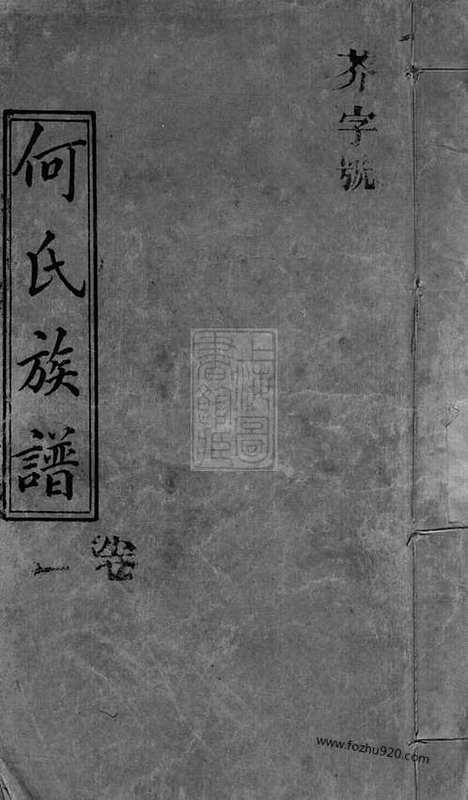 芥字號
何氏族譜
卷一
上海圖書館藏
www.fozhu920.com